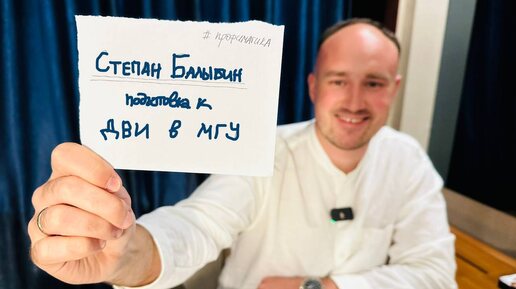 #ПРОФИМАТИКА
СТЕПАН БАЛЫБИН
ПОДГОТОВКА К
ДВИ В МГУ